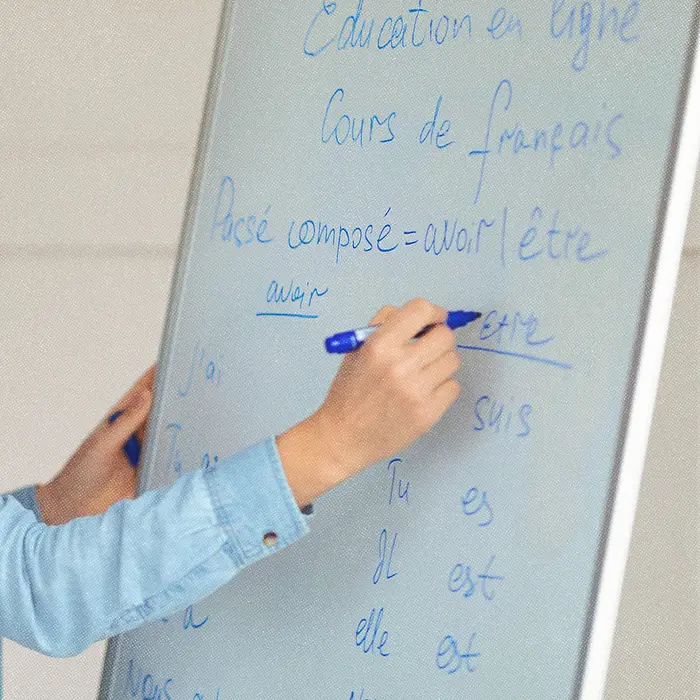 Éducation en ligne
Cours de français
Passé composé = avoir | être
avoir être
j'ai suis
Tu Tu es
Il est
a elle est
Nous